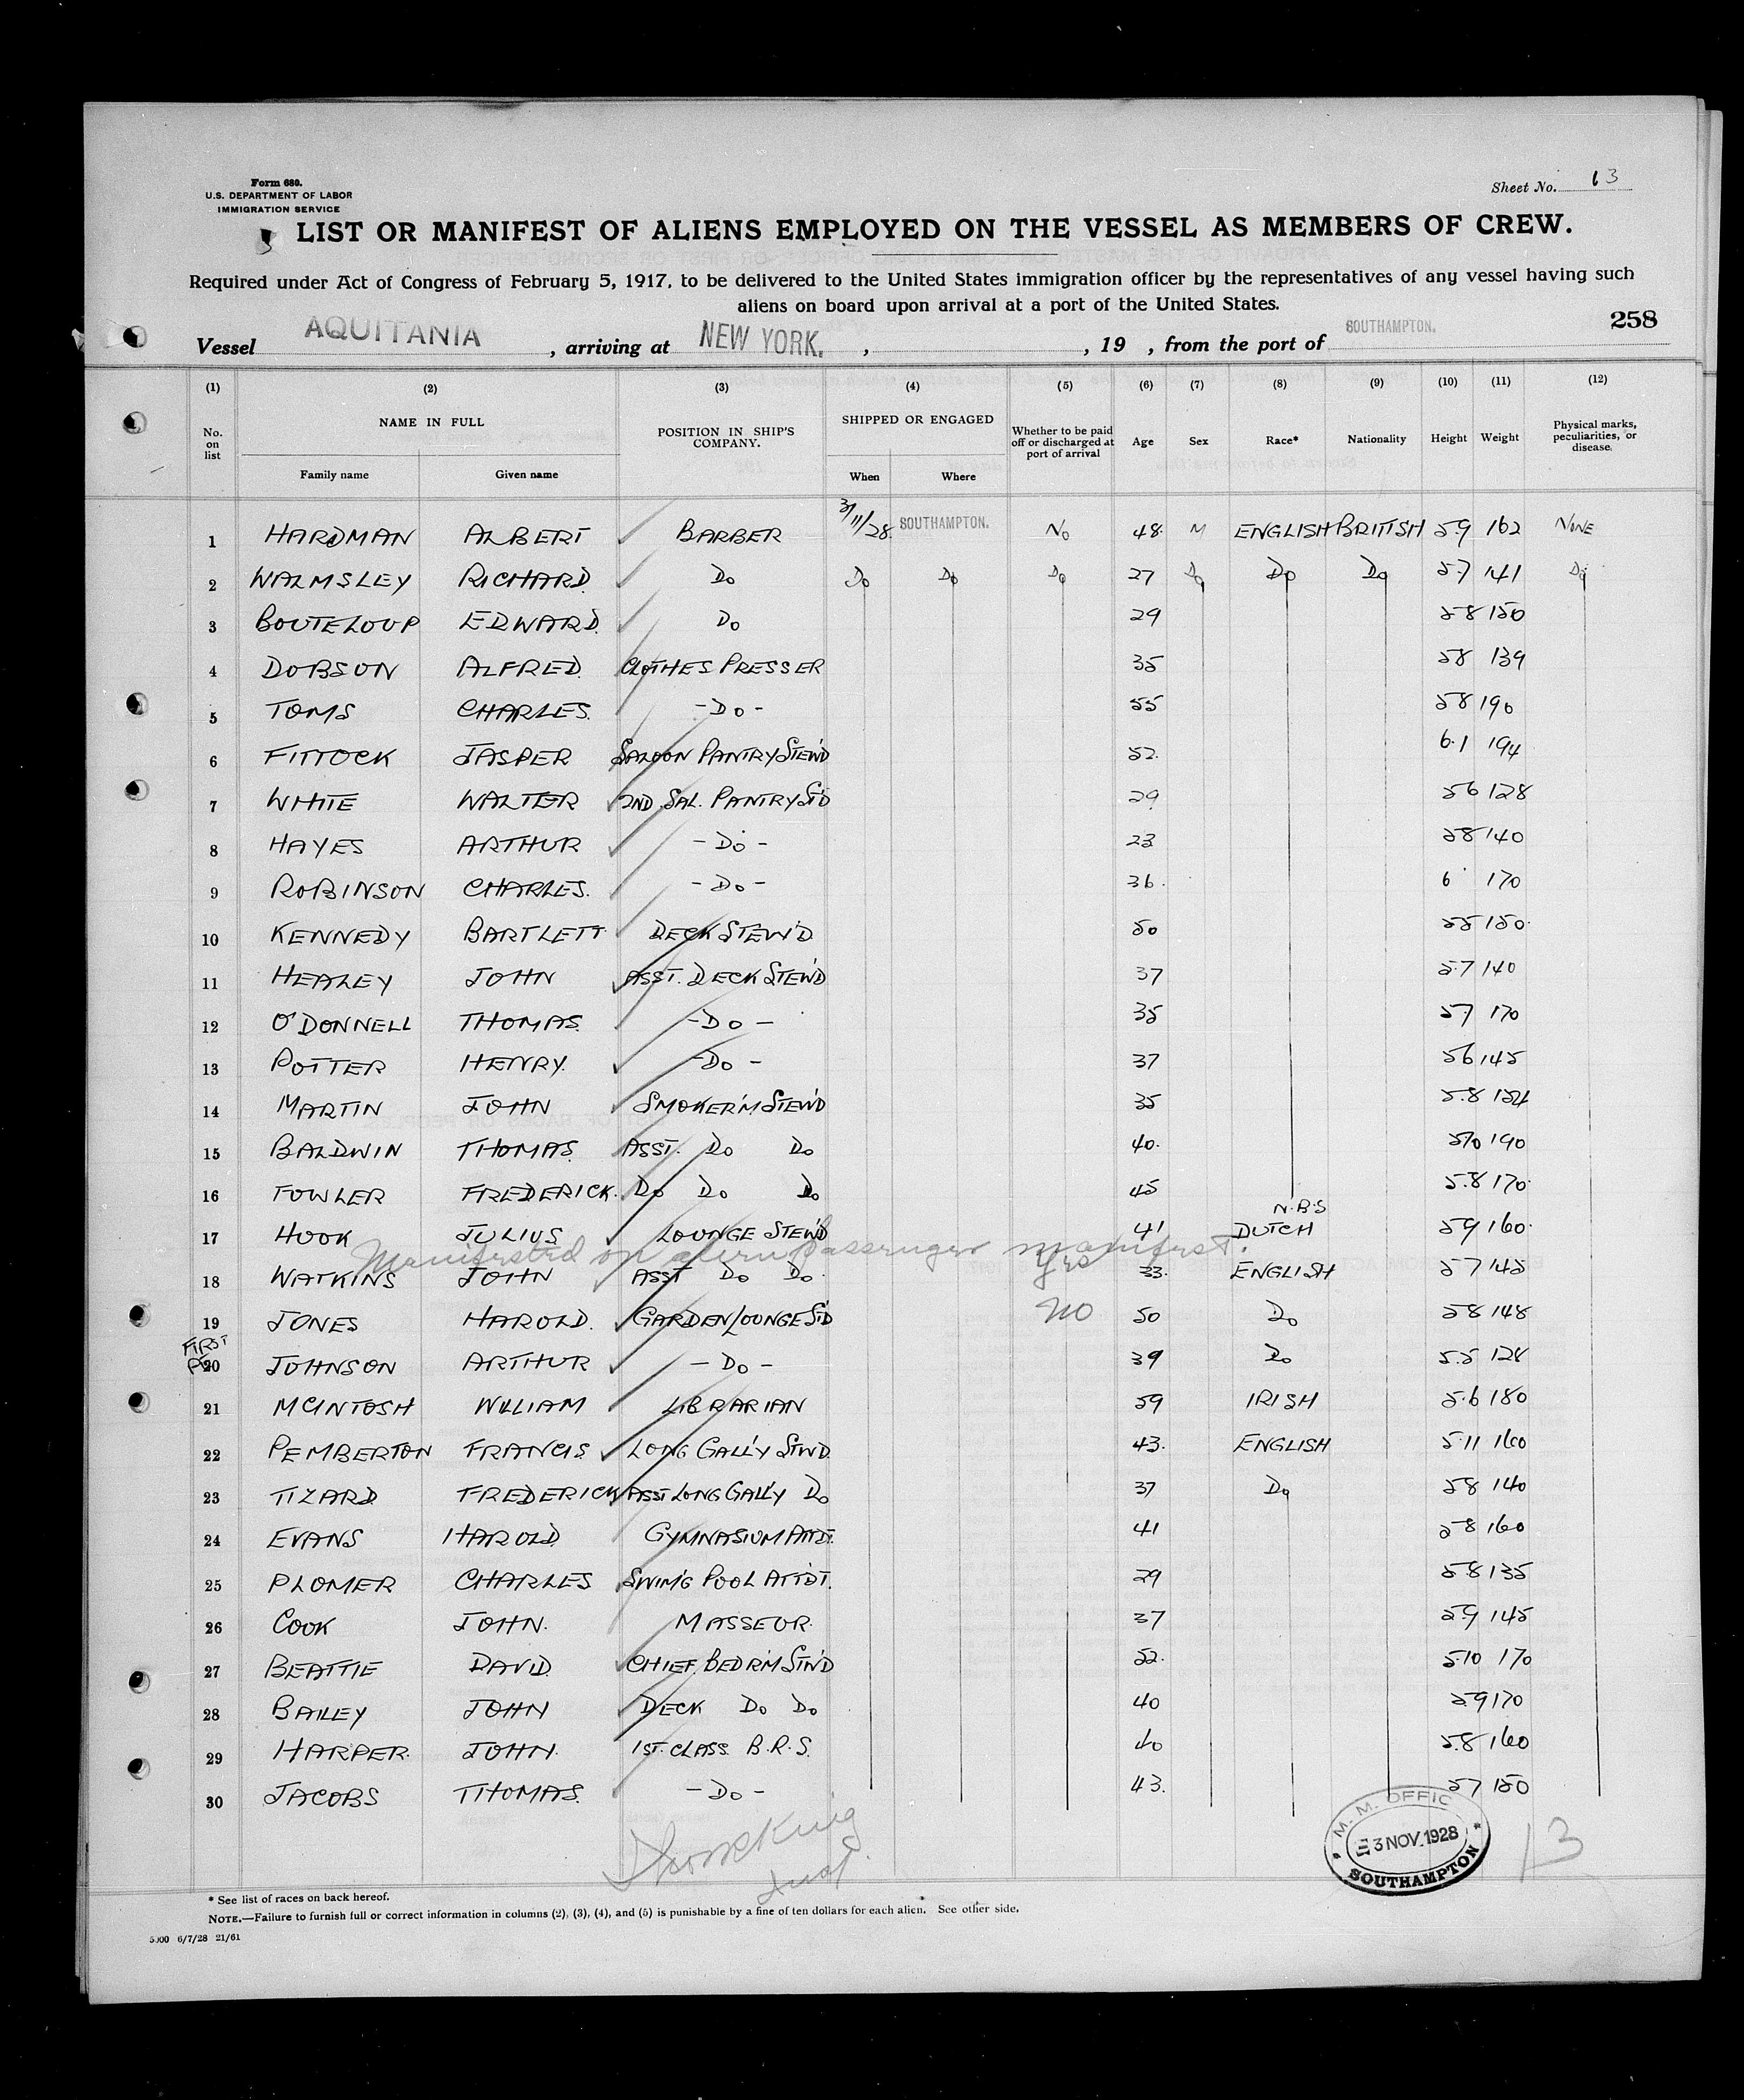 Form 689.
U.S. DEPARTMENT OF LABOR
IMMIGRATION SERVICE
Sheet No. 13
LIST OR MANIFEST OF ALIENS EMPLOYED ON THE VESSEL AS MEMBERS OF CREW.
Required under Act of Congress of February 5, 1917, to be delivered to the United States immigration officer by the representatives of any vessel having such
aliens on board upon arrival at a port of the United States.
258
Vessel AQUITANIA, arriving at NEW YORK. , , 19 , from the port of SOUTHAMPTON.
(1) (2) (3) (4) (5) (6) (7) (8) (9) (10) (11) (12)
No. on list NAME IN FULL Family name Given name POSITION IN SHIP'S COMPANY. SHIPPED OR ENGAGED When Where Whether to be paid off or discharged at port of arrival Age Sex Race* Nationality Height Weight Physical marks, peculiarities, or disease.
1 HARDMAN ALBERT BARBER 3/11/28. SOUTHAMPTON. No 48. M ENGLISH BRITISH 5.9 162 NONE
2 WALMSLEY RICHARD. Do Do Do Do 27 Do Do Do 5.7 141 Do
3 BOUTELOUP EDWARD. Do 29 5 8 150
4 DOBSON ALFRED. CLOTHES PRESSER 35 5 8 139
5 TOMS CHARLES. -Do- 55 5 8 190
6 FITTOCK JASPER SALOON PANTRY STEW'D 52. 6.1 194
7 WHITE WALTER 2ND. SAL. PANTRY ST'D 29 5 6 128
8 HAYES ARTHUR -Do- 23 5 8 140
9 ROBINSON CHARLES. -Do- 36. 6 170
10 KENNEDY BARTLETT DECK STEW'D 50 5 5 150
11 HEALEY JOHN ASST. DECK STEW'D 37 5.7 140
12 O'DONNELL THOMAS. -Do- 35 5 7 170
13 POTTER HENRY. -Do- 37 5 6 145
14 MARTIN JOHN SMOKER'M STEW'D 35 5.8 154
15 BALDWIN THOMAS. ASST. Do Do 40. 5 10 190
16 FOWLER FREDERICK. Do Do Do 45 5.8 170
N.B.S
17 HOOK JULIUS LOUNGE STEW'D 41 DUTCH 5 9 160
Manifested on alien passenger manifest.
18 WATKINS JOHN ASST Do Do Yes 33. ENGLISH 5 7 145
19 JONES HAROLD. GARDEN LOUNGE S'D NO 50 Do 5 8 148
FIRST
20 JOHNSON ARTHUR -Do- 39 Do 5.5 128
21 MCINTOSH WILLIAM LIBRARIAN 59 IRISH 5.6 180
22 PEMBERTON FRANCIS LONG GALL'Y STW'D. 43. ENGLISH 5.11 160
23 TIZARD FREDERICK ASST LONG GALL'Y Do 37 Do 5 8 140
24 EVANS HAROLD GYMNASIUM ATTDT. 41 5 8 160
25 PLOMER CHARLES SWIM'G POOL ATT'DT. 29 5 8 135
26 COOK JOHN. MASSEUR. 37 5.9 145
27 BEATTIE DAVID. CHIEF. BEDR'M STW'D 52. 5.10 170
28 BAILEY JOHN DECK Do Do 40 5.9 170
29 HARPER. JOHN. 1ST. CLASS. B.R.S. 40 5.8 160
30 JACOBS THOMAS. -Do- 43. 5 7 150
M. M. OFFIC
3 NOV. 1928
SOUTHAMPTON
13
* See list of races on back hereof.
NOTE.—Failure to furnish full or correct information in columns (2), (3), (4), and (5) is punishable by a fine of ten dollars for each alien. See other side.
5000 6/7/28 21/61